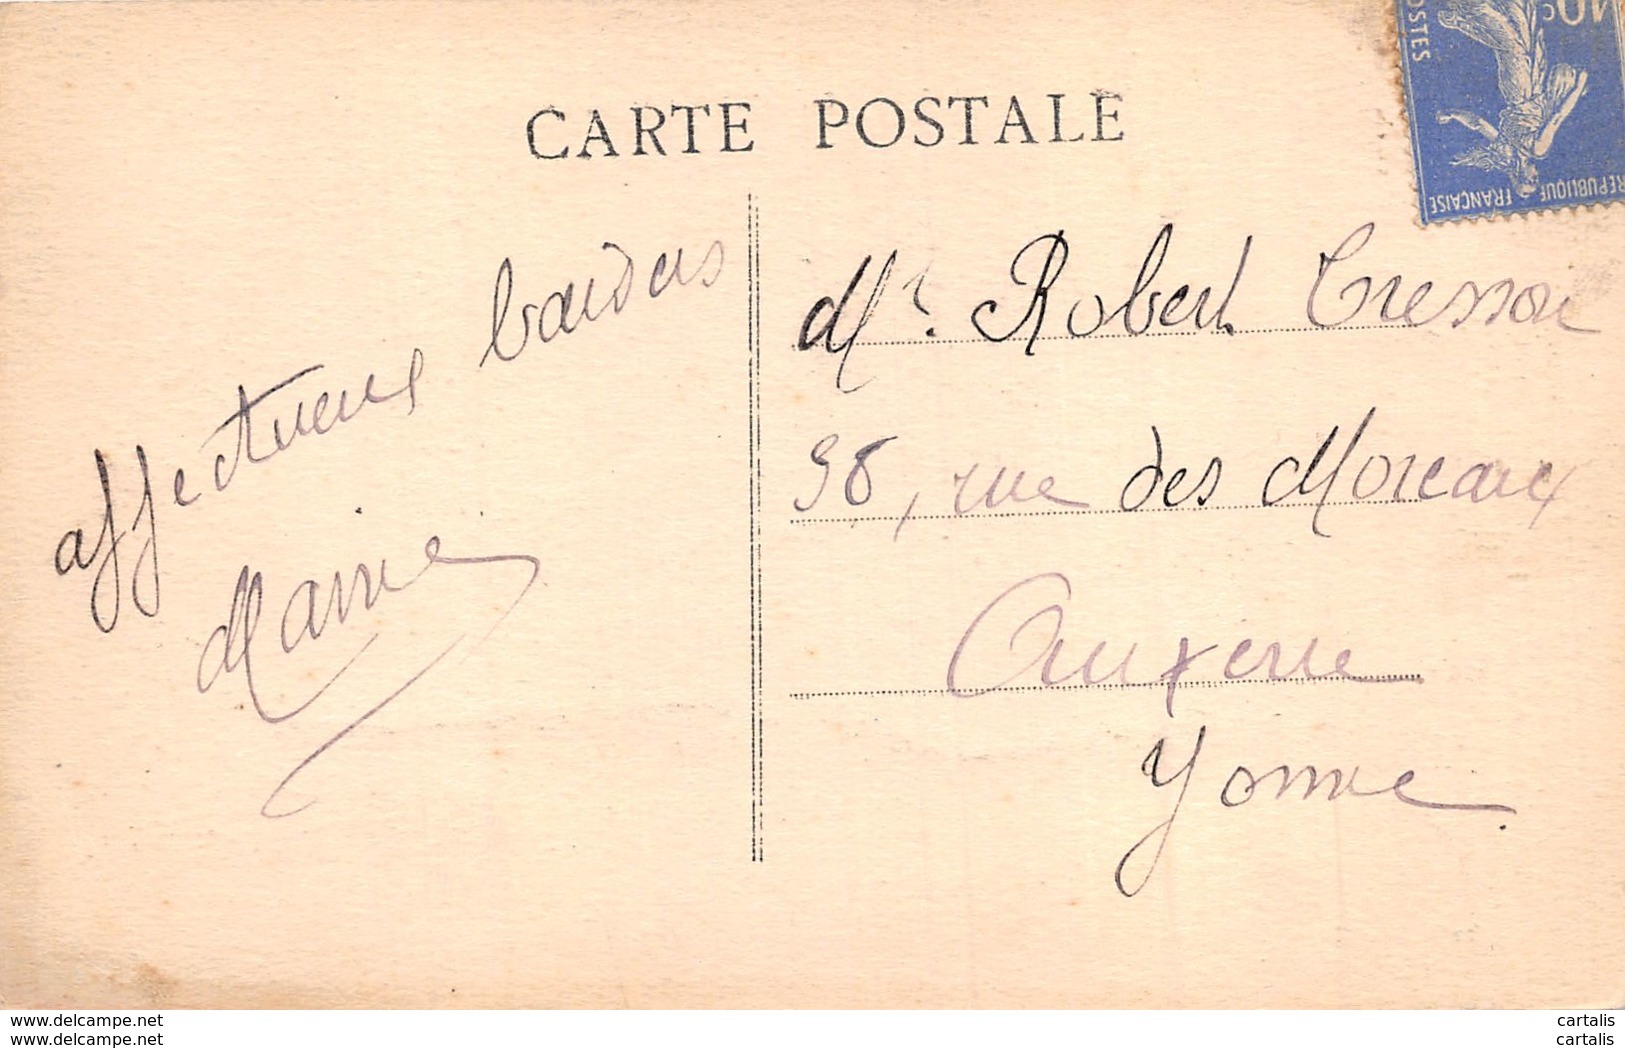 CARTE POSTALE
10c
POSTES
REPUBLIQUE FRANÇAISE
affectueux baisers
Marie
Mr. Robert
98, rue des Moreaux
Auxerre
Yonne.
www.delcampe.net
www.delcampe.net
cartalis
cartalis